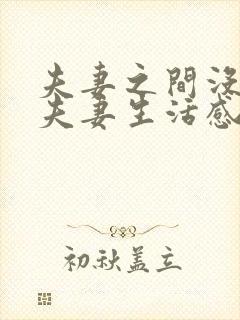 夫妻之間沒
夫妻生活感
初秋盖立